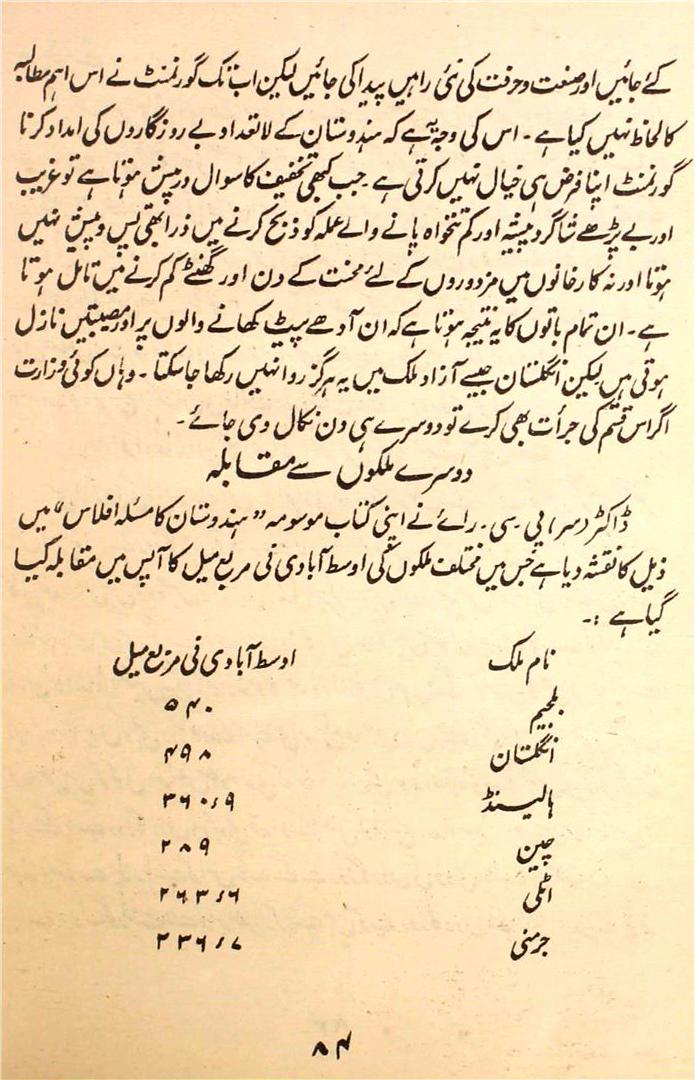 کئے جائیں اور صنعت و حرفت کی نئی راہیں پیدا کی جائیں لیکن اب تک گورنمنٹ نے اس اہم مطالبہ
کا لحاظ نہیں کیا ہے ۔ اس کی وجہ یہ ہے کہ ہندوستان کے لاتعداد بے روزگاروں کی امداد کرنا
گورنمنٹ اپنا فرض ہی خیال نہیں کرتی ہے ۔ جب کبھی تخفیف کا سوال درپیش ہوتا ہے تو غریب
اور بے پڑھے شاگرد پیشہ اور کم تنخواہ پانے والے عملہ کو ذبح کرنے میں ذرا بھی پس و پیش نہیں
ہوتا اور نہ کارخانوں میں مزدوروں کے لئے محنت کے دن اور گھنٹے کم کرنے میں تامل ہوتا
ہے ۔ ان تمام باتوں کا یہ نتیجہ ہوتا ہے کہ ان آدھے پیٹ کھانے والوں پر اور مصیبتیں نازل
ہوتی ہیں لیکن انگلستان جیسے آزاد ملک میں یہ ہرگز روا نہیں رکھا جاسکتا ۔ وہاں کوئی وزارت
اگر اس قسم کی جرأت بھی کرے تو دوسرے ہی دن نکال دی جائے ۔
دوسرے ملکوں سے مقابلہ
ڈاکٹر (سر) پی ۔ سی ۔ رائے نے اپنی کتاب موسومہ "ہندوستان کا مسئلہ افلاس" میں
ذیل کا نقشہ دیا ہے جس میں مختلف ملکوں کی اوسط آبادی فی مربع میل کا آپس میں مقابلہ کیا
گیا ہے :۔
نام ملک اوسط آبادی فی مربع میل
بلجیم ۵۴۰
انگلستان ۴۹۸
ہالینڈ ۳۶۰٫۹
چین ۲۸۹
اٹلی ۲۶۳٫۶
جرمنی ۲۳۶٫۷
۸۴